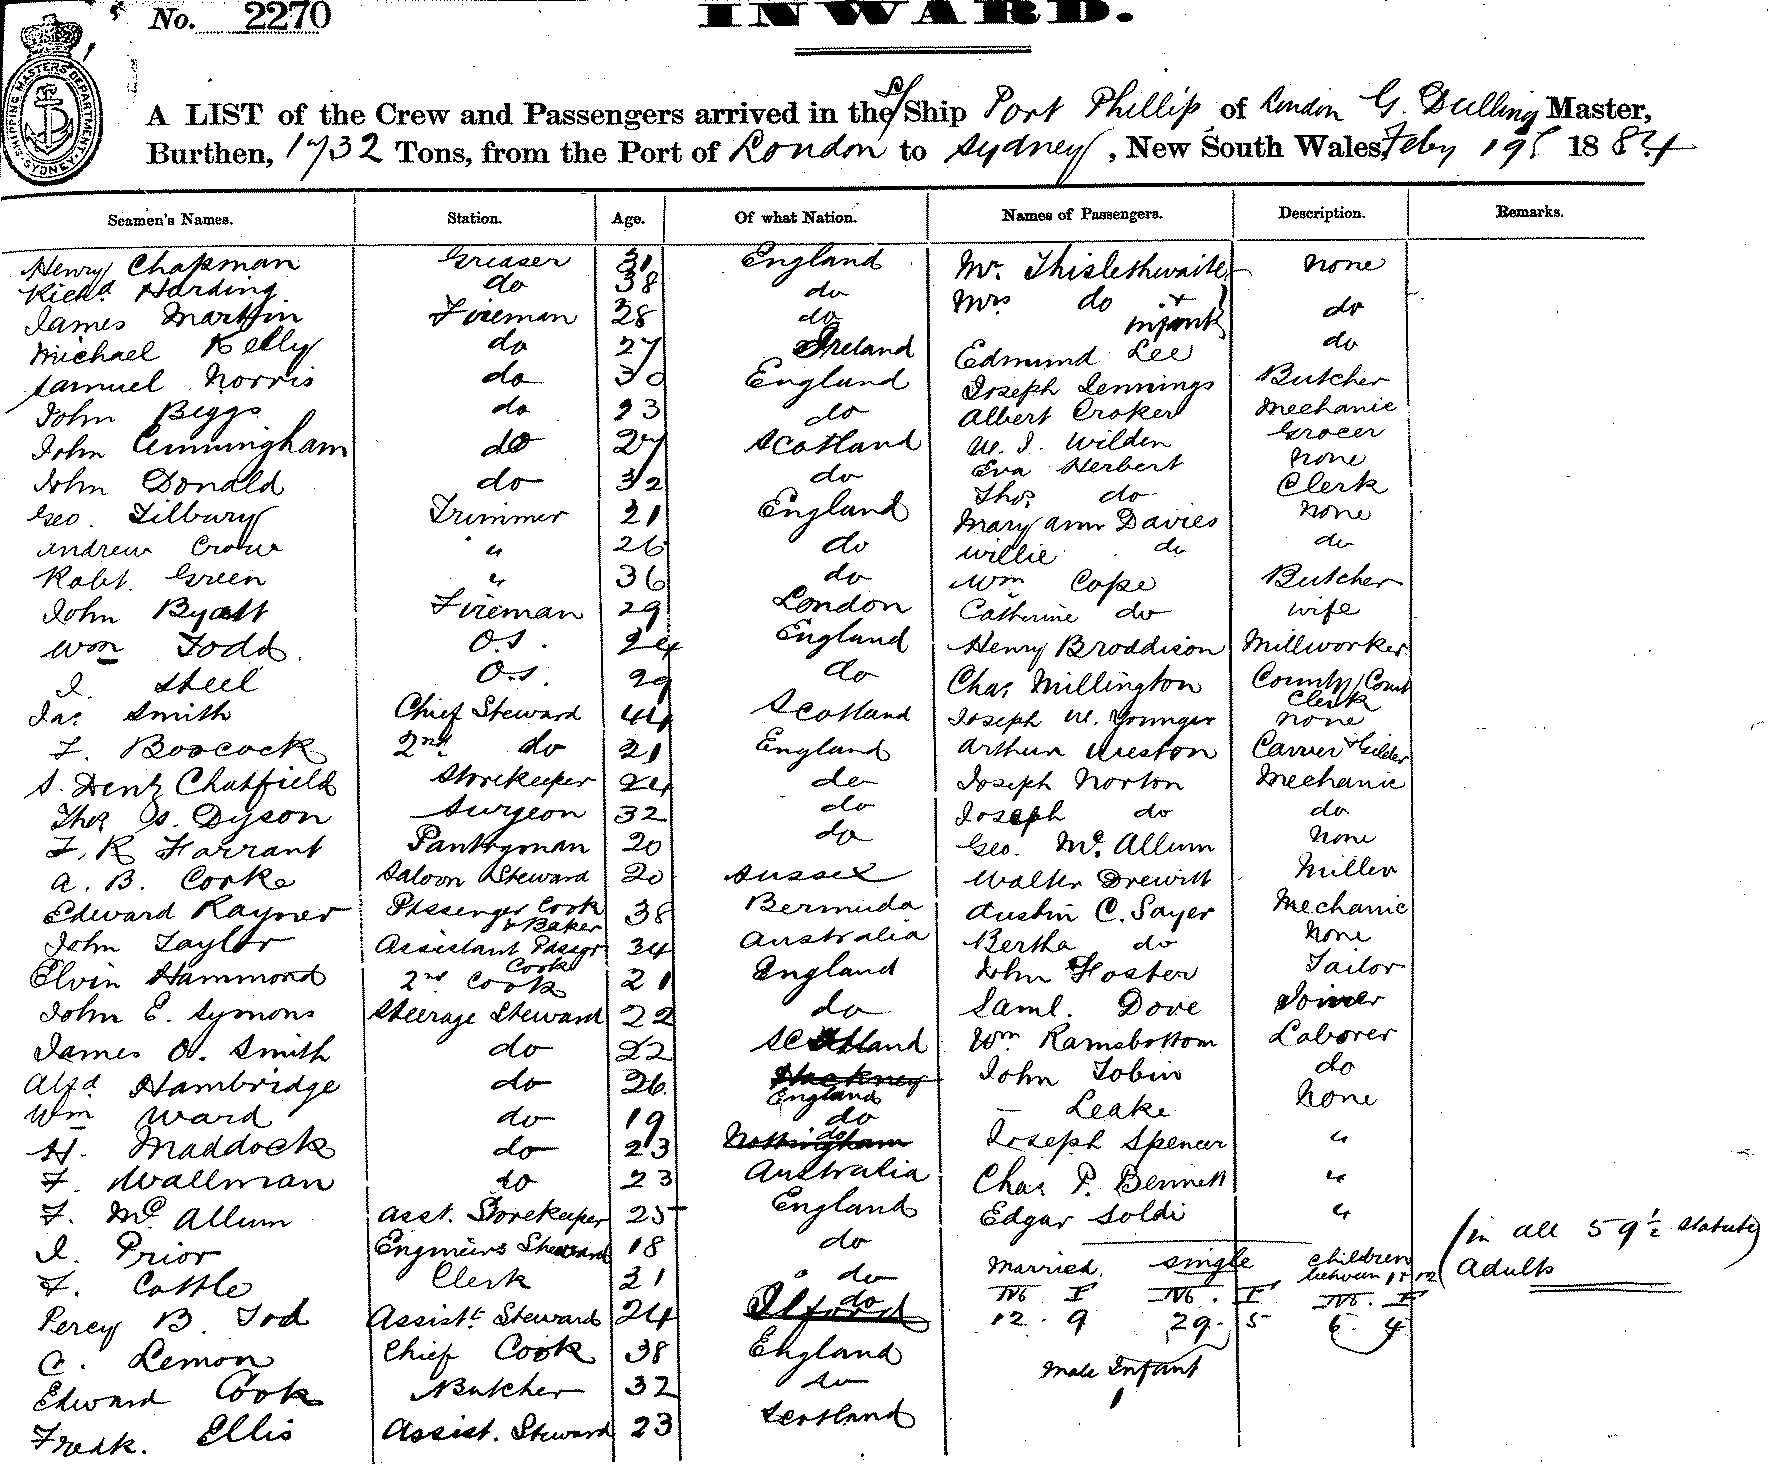 No. 2270
INWARD.
SHIPPING MASTERS DEPARTMENT SYDNEY
A LIST of the Crew and Passengers arrived in the Ship Port Phillip of London G. Dulling Master,
Burthen, 1732 Tons, from the Port of London to Sydney, New South Wales Feby 19 1884
Seamen's Names. Station. Age. Of what Nation. Names of Passengers. Description. Remarks.
Henry Chapman Greaser 31 England Mr. Thislethwaite none
Richd Harding do 38 do Mrs do + Infant do
James Martin Fireman 28 do
Michael Kelly do 27 Ireland Edmund Lee do
Samuel Norris do 30 England Joseph Jennings Butcher
John Biggs do 23 do Albert Croker Mechanic
John Cunningham do 27 Scotland W. J. Wilden Grocer
John Donald do 32 do Eva Herbert none
Geo. Tilbury Trimmer 21 England Thos. do Clerk
Andrew Crow " 26 do Mary Ann Davies none
Robt. Green " 36 do Willie do do
John Byatt Fireman 29 London Wm Cope Butcher
Wm Todd. O.S. 24 England Catherine do wife
J. Steel O.S. 29 do Henry Broddison Millworker
Jas Smith Chief Steward 44 Scotland Chas Millington County Court Clerk
F. Boocock 2nd do 21 England Joseph W. Younger none
S. Dentz Chatfield Storekeeper 24 do Arthur Weston Carver & Gilder
Thos S. Dyson Surgeon 32 do Joseph Norton Mechanic
F. R Farrant Pantryman 20 do Joseph do do
A. B. Corke Saloon Steward 20 Sussex Geo. McAllum none
Edward Rayner Passenger Cook & Baker 38 Bermuda Walter Drewitt Miller
John Taylor Assistant Passgr Cook 34 Australia Austin C. Sayer Mechanic
Elvin Hammond 2nd Cook 21 England Bertha do none
John E. Symons Steerage Steward 22 do John Foster Tailor
James A. Smith do 22 Scotland Saml. Dove Joiner
Alfd Hambridge do 26 Hackney England Wm Ramsbottom Laborer
Wm Ward do 19 do John Tobin do
H. Maddock do 23 Nottingham do — Leake none
F. Wallman do 23 Australia Joseph Spencer "
F. McAllum Asst. Storekeeper 25 England Chas P. Bennett "
J. Prior Engineers Steward 18 do Edgar Soldi "
F. Cottle Clerk 21 do
Percy B. Tod Assist. Steward 24 Ilford do
C. Lemon Chief Cook 38 England
Edward Cook Butcher 32 do
Fredk. Ellis Assist. Steward 23 Scotland
Married. Single children between 1 & 12
M F M. F M. F
12. 9 29. 5 6. 4
Male Infant
1
(in all 59½ statute
Adults)